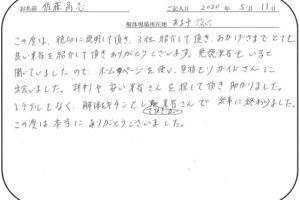 お名前 佐藤高志 ご記入日 2020年 5月 11日
解体現場所在地 あま市
この度は、親切に説明して頂き、3社紹介して頂き、おかげさまでとても
良い業者を紹介して頂きありがとうございます。悪徳業者もいると
聞いていましたので、ホームページを使い、見積もりガイドさんに
出会いました。評判や良い業者さんを探して頂き助かりました。
トラブルもなく、解体もキチンとし 業者さんで 無事に終わりました。
て頂き
この度は本当にありがとうございました。